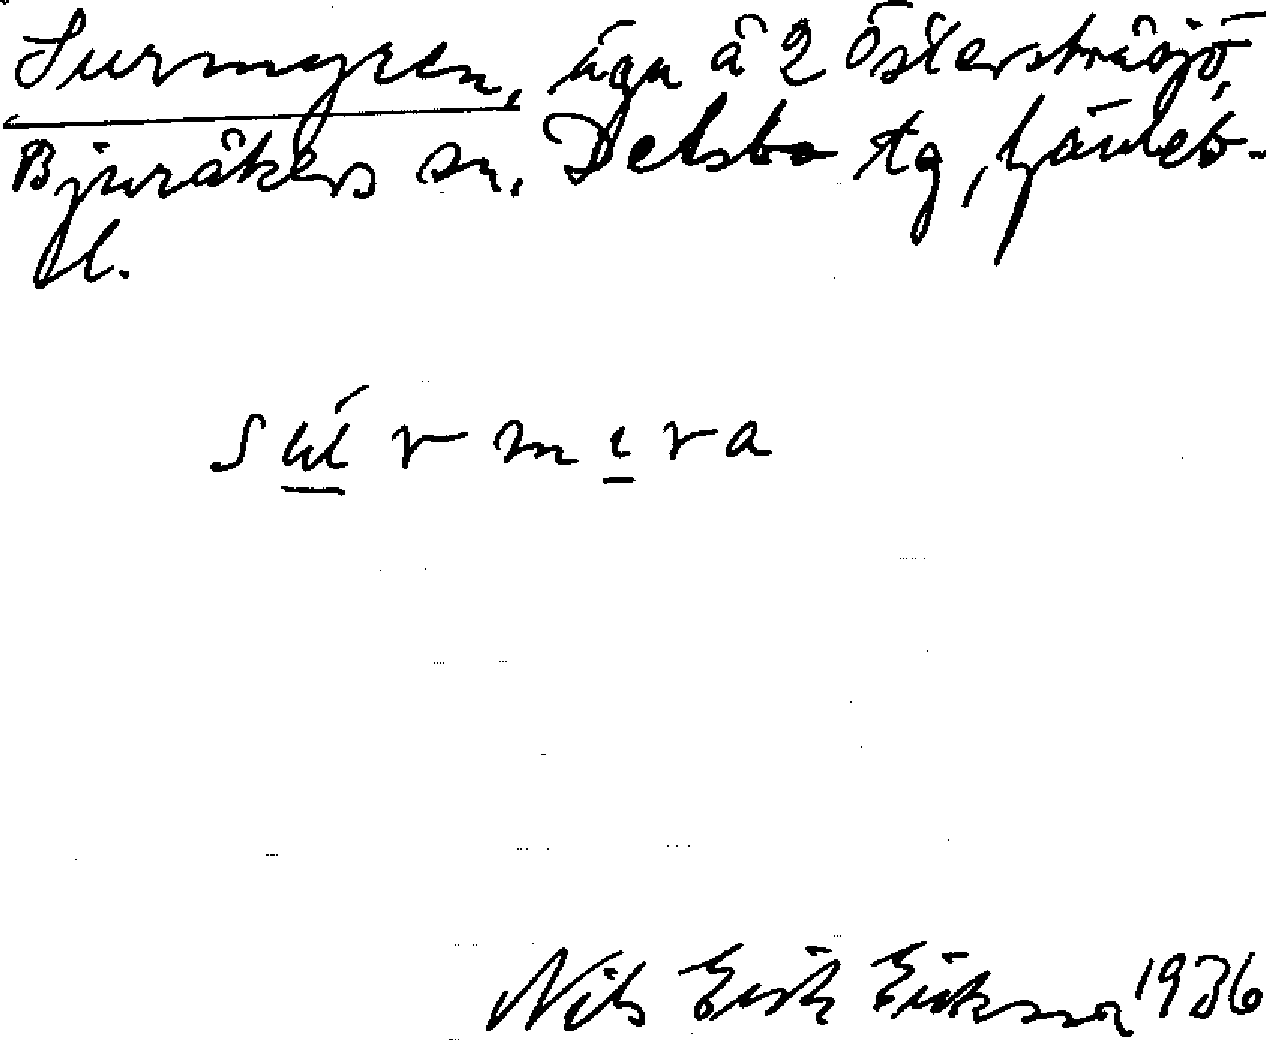 Surmyren, äga å 2 Östersträsjö,
Bjuråkers sn. Delsbo tg, Gävleb-
l.
súrmıra
Nils Erik Eriksson 1936